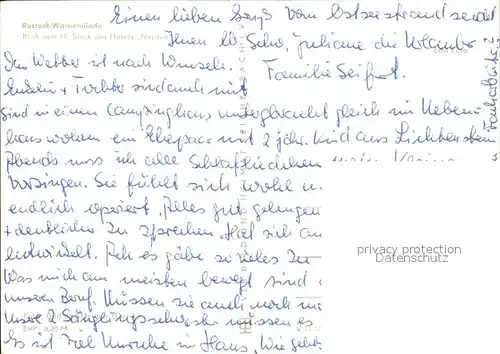 Rostock-Warnemünde
Blick vom 18. Stock des Hotels "Neptun"
Einen lieben Gruß vom Ostseestrand sendet
Ihnen lb. Schw. Juliane die Urlauber
Familie Seifert.
Das Wetter ist nach Wunsch.
Enkelin + Tochter sind auch mit
Sind in einem Campinghaus untergebracht gleich im Neben-
haus wohnen ein Ehepaar mit 2 jähr. Kind aus Lichtenstein
Abends muss ich alle Schlafliedchen
vorsingen. Sie fühlt sich wohl u.
endlich operiert. Alles gut gelungen
+ deutlicher zu sprechen. Hat sich
entwickelt. Ach es gäbe so vieles zu
Was mich am meisten bewegt sind
unseren Beruf. Müssen sie auch noch
unsere 2 Säuglingsschwester müssen es
Es ist viel Unruhe im Haus. Wie geht
EVP: 0,20 M
privacy protection
Datenschutz